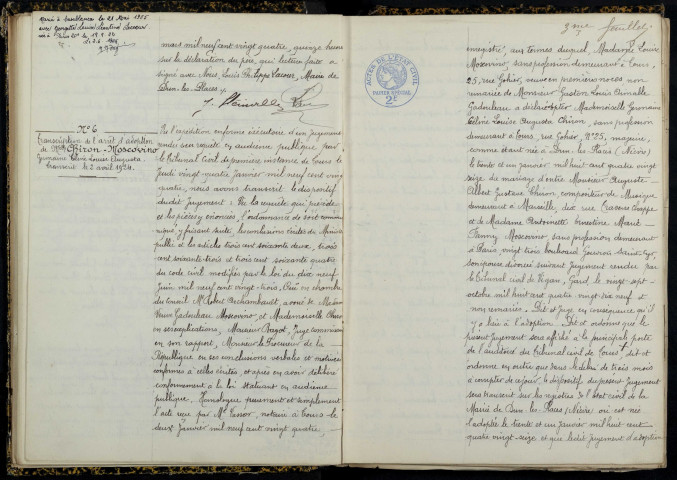 Marié à Casablanca le 28 Mai 1925
avec Georgette Louise
mars mil neuf cent vingt quatre, quinze heures
sur la déclaration du père, qui lecture faite a
signé avec Nous, Louis Philippe Maire de
Dun-les-Places
N° 6
transcription de l'arrêt d'adoption
de Melle Chiron-Moscovino
Germaine Edmée Louise Augusta
transcrit le 2 avril 1924.
De l'expédition en forme exécutoire d'un jugement
rendu son requête en audience publique par
le Tribunal Civil de première instance de Tours le
jeudi vingt quatre Janvier mil neuf cent vingt
quatre, nous avons transcrit le dispositif
du dit Jugement : Vu la requête qui précède
et les pièces y énoncées, l'ordonnance de soit communi-
qué y faisant suite, les conclusions écrites du Ministère
public et les articles trois cent soixante deux, trois
cent soixante trois et trois cent soixante quatre
du code civil modifiés par la loi du dix neuf
Juin mil neuf cent vingt-trois. Ouï en chambre
du Conseil Me Robert Archambault, avoué de Madame
Veuve Gadonleau Moscovino et Mademoiselle Chiron
en ses explications, Monsieur Juge Commissaire
en son rapport, Monsieur le Procureur de la
République en ses conclusions verbales et motivées
conformes à celles écrites, et après en avoir délibéré
conformément à la loi statuant en audience
publique. Homologue purement et simplement
l'acte reçu par Me notaire à Tours le
deux Janvier mil neuf cent vingt quatre,
3eme feuillet
ACTES DE L'ÉTAT CIVIL
PAPIER SPÉCIAL
2F
enregistré, aux termes duquel, Madame Louise
Moscovino, sans profession demeurant à Tours,
25, rue Gohier, veuve en premières noces non
remariée de Monsieur Gaston Louis Aimable
Gadonleau a déclaré adopter Mademoiselle Germaine
Edmée Louise Augusta Chiron, sans profession
demeurant à Tours, rue Gohier, N° 25, majeure,
comme étant née à Dun-les-Places (Nièvre)
le trente et un janvier mil huit cent quatre vingt
seize du mariage d'entre Monsieur Auguste-
Albert Gustave Chiron, compositeur de Musique
demeurant à Marseille, dix rue
et de Madame Antoinette Ernestine Marie-
Fanny Moscovino sans profession demeurant
à Paris vingt trois boulevard Gouvion Saint-Cyr,
son épouse divorcée suivant jugement rendu par
le Tribunal civil du Vigan, Gard, le vingt sept-
octobre mil huit cent quatre vingt dix neuf et
non remariée. Dit et juge en conséquence qu'il
y a lieu à l'adoption. Dit et ordonne que le
présent Jugement sera affiché à la principale porte
de l'auditoire du tribunal civil de Tours, dit et
ordonne en outre que dans le délai de trois mois
à compter de ce jour, le dispositif du présent Jugement
sera transcrit sur les registres de l'état civil de la
Mairie de Dun-les-Places (Nièvre) où est née
l'adoptée le trente et un janvier mil huit cent
quatre vingt-seize et que le dit jugement d'adoption